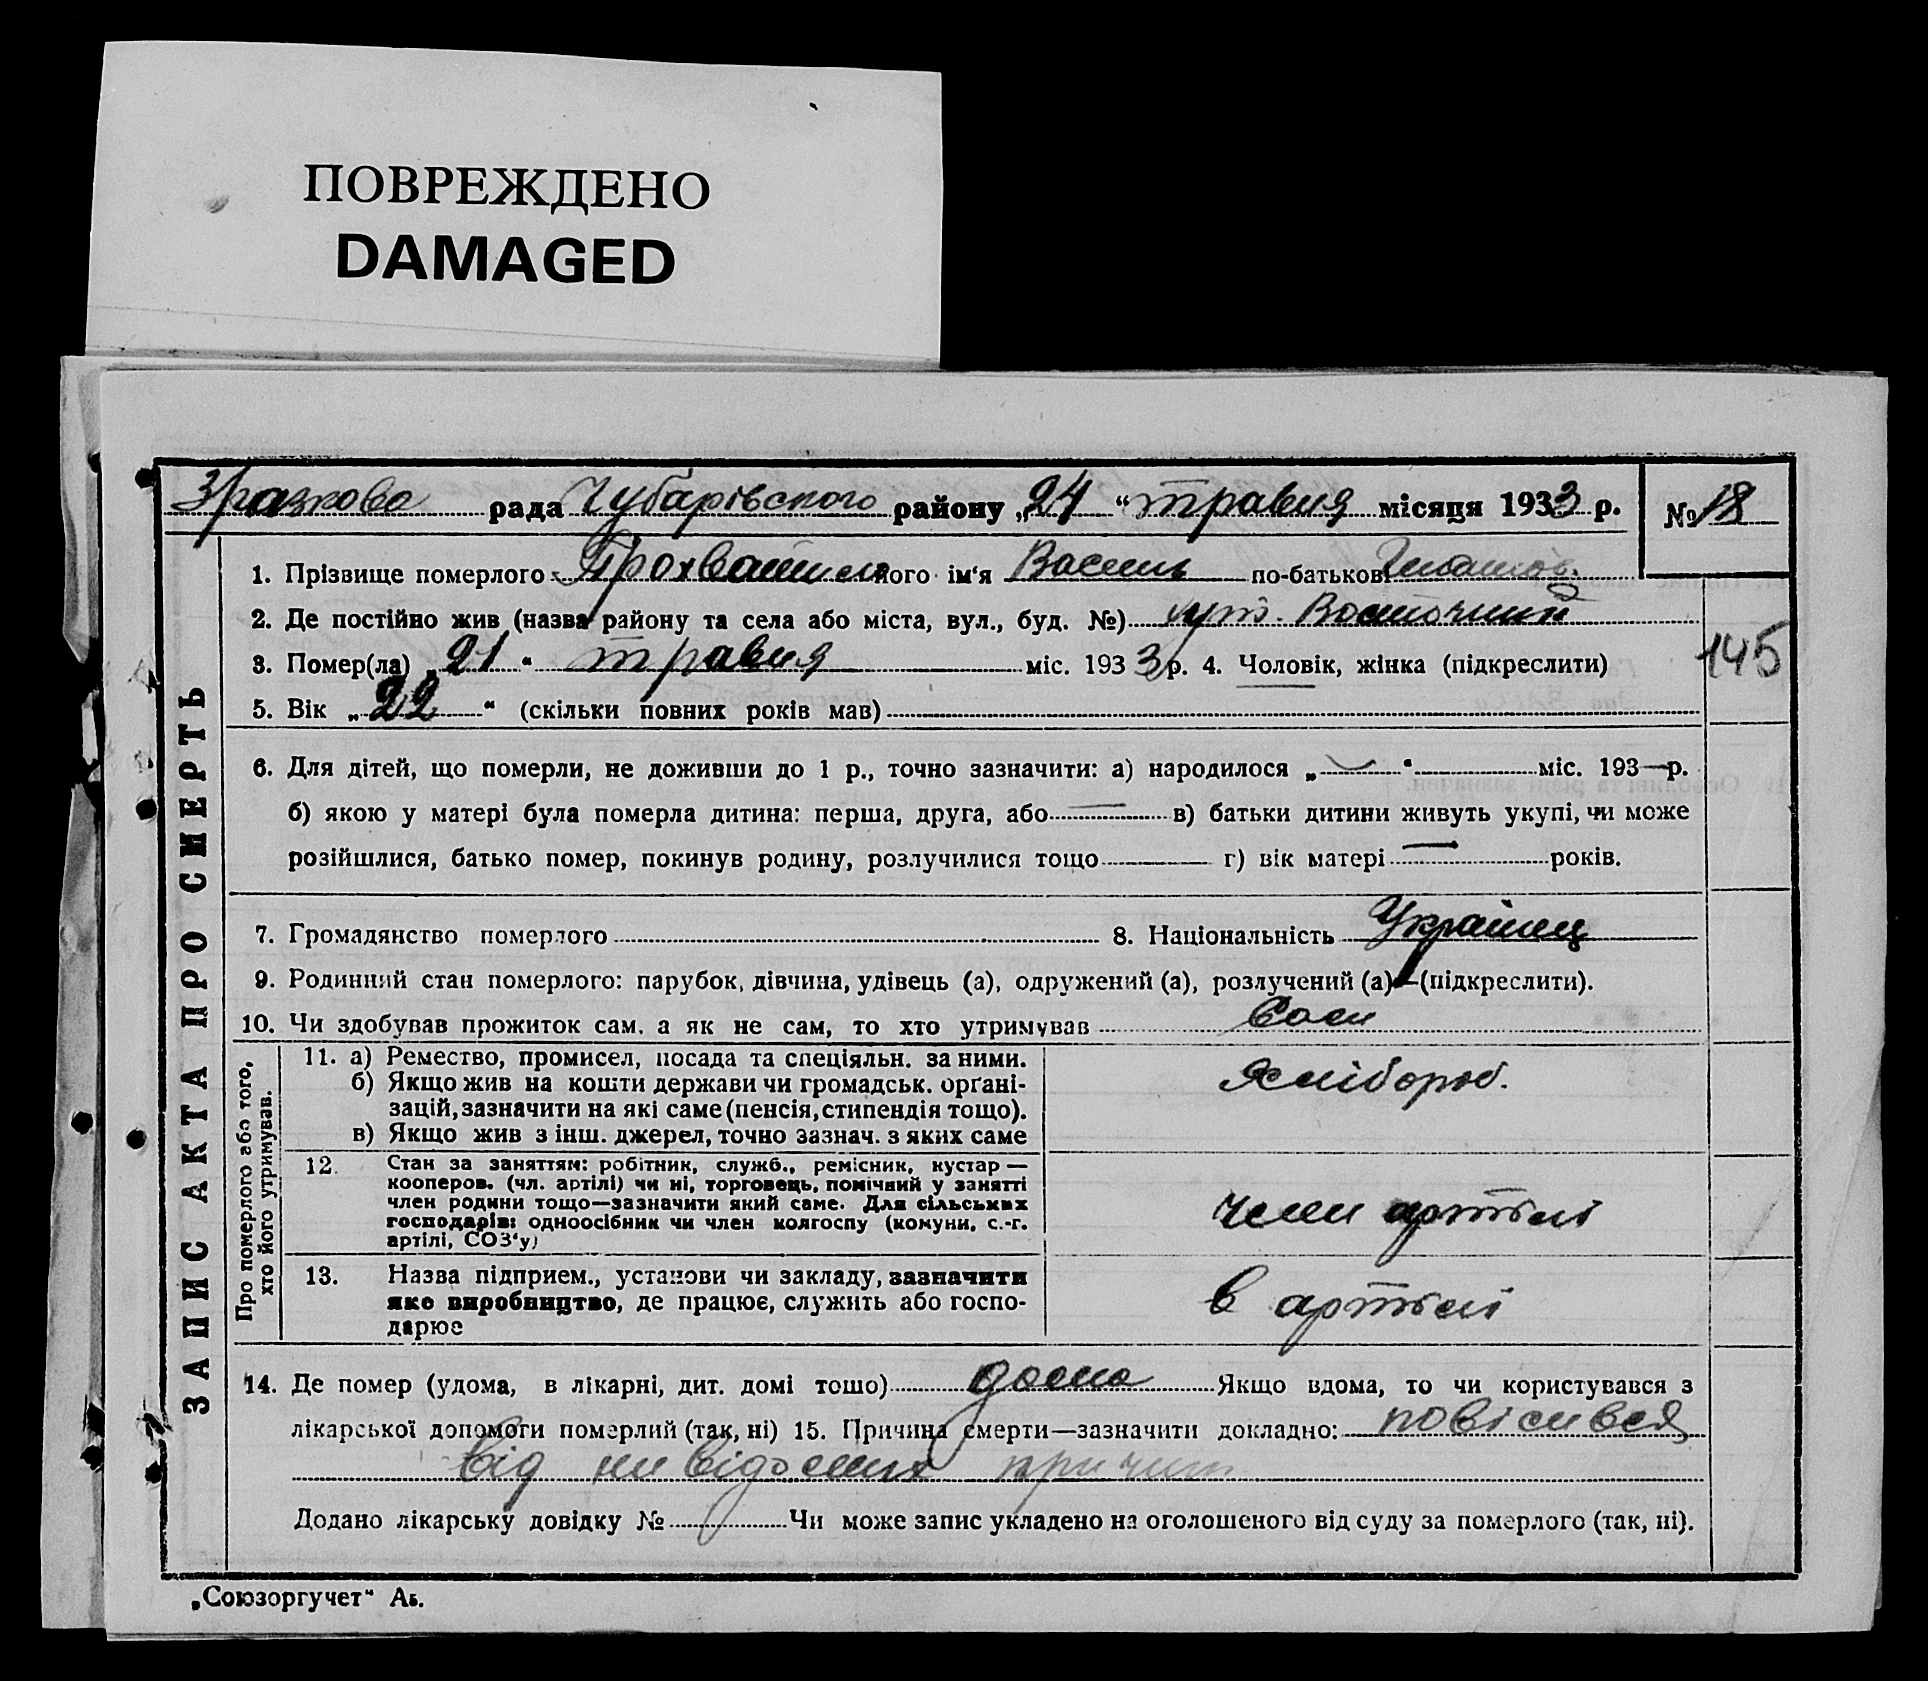 ПОВРЕЖДЕНО
DAMAGED
Зразкова рада Чубарівського району „24 “ травня місяця 1933 р. № 18
1. Прізвище померлого його ім‘я Василь по-батькові
2. Де постійно жив (назва району та села або міста, вул., буд. №) хут. Восточний
3. Помер(ла) „21 “ травня міс. 1933 р. 4. Чоловік, жінка (підкреслити)
145
5. Вік „ 22 “ (скільки повних років мав)
6. Для дітей, що померли, не доживши до 1 р., точно зазначити: а) народилося „ — “ міс. 193—р.
б) якою у матері була померла дитина: перша, друга, або — в) батьки дитини живуть укупі, чи може
розійшлися, батько помер, покинув родину, розлучилися тощо — г) вік матері — років.
7. Громадянство померлого 8. Національність Украінец
9. Родинний стан померлого: парубок, дівчина, удівець (а), одружений (а), розлучений (а)—(підкреслити).
10. Чи здобував прожиток сам, а як не сам, то хто утримував Сам
ЗАПИС АКТА ПРО СМЕРТЬ
Про померлого або того,
хто його утримував.
11. а) Ремество, промисел, посада та спеціяльн. за ними.
Хлібороб.
б) Якщо жив на кошти держави чи громадськ. орґані-
зацій, зазначити на які саме (пенсія, стипендія тощо).
в) Якщо жив з інш. джерел, точно зазнач. з яких саме
12. Стан за заняттям: робітник, служб., ремісник, кустар —
кооперов. (чл. артілі) чи ні, торговець, помічний у занятті
член родини тощо—зазначити який саме. Для сільських
господарів: одноосібник чи член колгоспу (комуни, с.-г.
артілі, СОЗ‘у)
член артілі
13. Назва підприєм., установи чи закладу, зазначити
яке виробництво, де працює, служить або госпо-
дарює
в артілі
14. Де помер (удома, в лікарні, дит. домі тощо) дома Якщо вдома, то чи користувався з
лікарської допомоги померлий (так, ні) 15. Причина смерти—зазначити докладно: повісився
від невідомих причин
Додано лікарську довідку № Чи може запис укладено на оголошеного від суду за померлого (так, ні).
„Союзоргучет“ Аб.